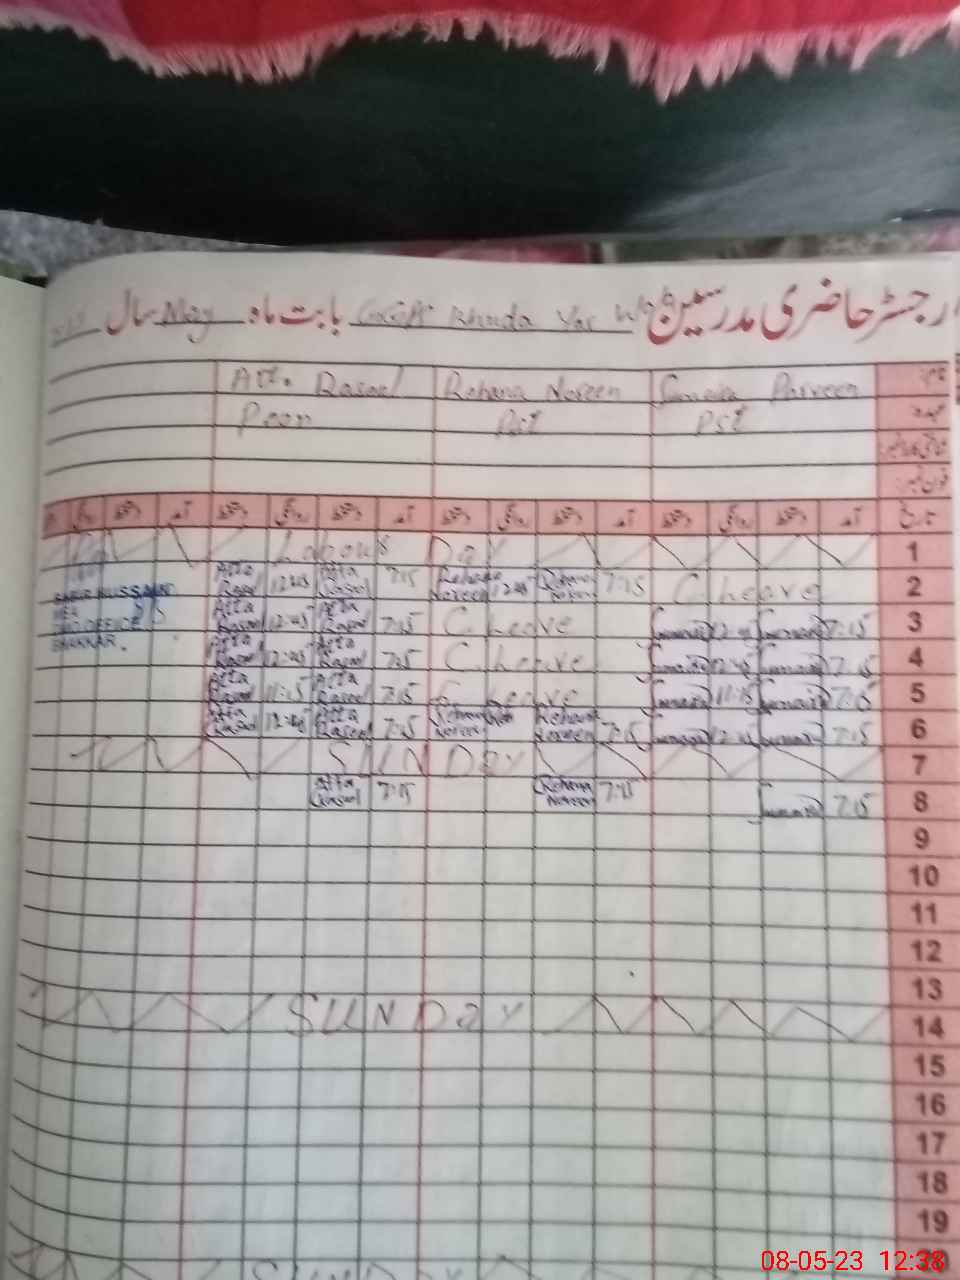 رجسٹر حاضری مدرسین GGPS Khuda Yar بابت ماہ May سال
نام Sumaira Parveen Rehana Noreen Atta Rasool
عہدہ Pst Pst Peon
شناختی کارڈ نمبر
فون نمبر
تاریخ آمد دستخط روانگی دستخط آمد دستخط روانگی دستخط آمد دستخط روانگی دستخط آمد دستخط روانگی
1 Labour Day
2 C.Leave 7:15 Rehana Noreen 12:45 Rehana Noreen 7:15 Atta Rasool 12:45 Atta Rasool
SABIR HUSSAIN
AEO
OFFICE
BHAKKAR.
3 7:15 Sumaira 12:45 Sumaira C.Leave 7:15 Atta Rasool 12:45 Atta Rasool
4 7:15 Sumaira 12:45 Sumaira C.Leave 7:15 Atta Rasool 12:45 Atta Rasool
5 7:15 Sumaira 11:15 Sumaira C.Leave 7:15 Atta Rasool 11:15 Atta Rasool
6 7:15 Sumaira 12:45 Sumaira 7:15 Rehana Noreen Rehana Noreen 7:15 Atta Rasool 12:45 Atta Rasool
7 SUNDAY
8 7:15 Sumaira 7:15 Rehana Noreen 7:15 Atta Rasool
9
10
11
12
13
14 SUNDAY
15
16
17
18
19
SUNDAY
08-05-23 12:38